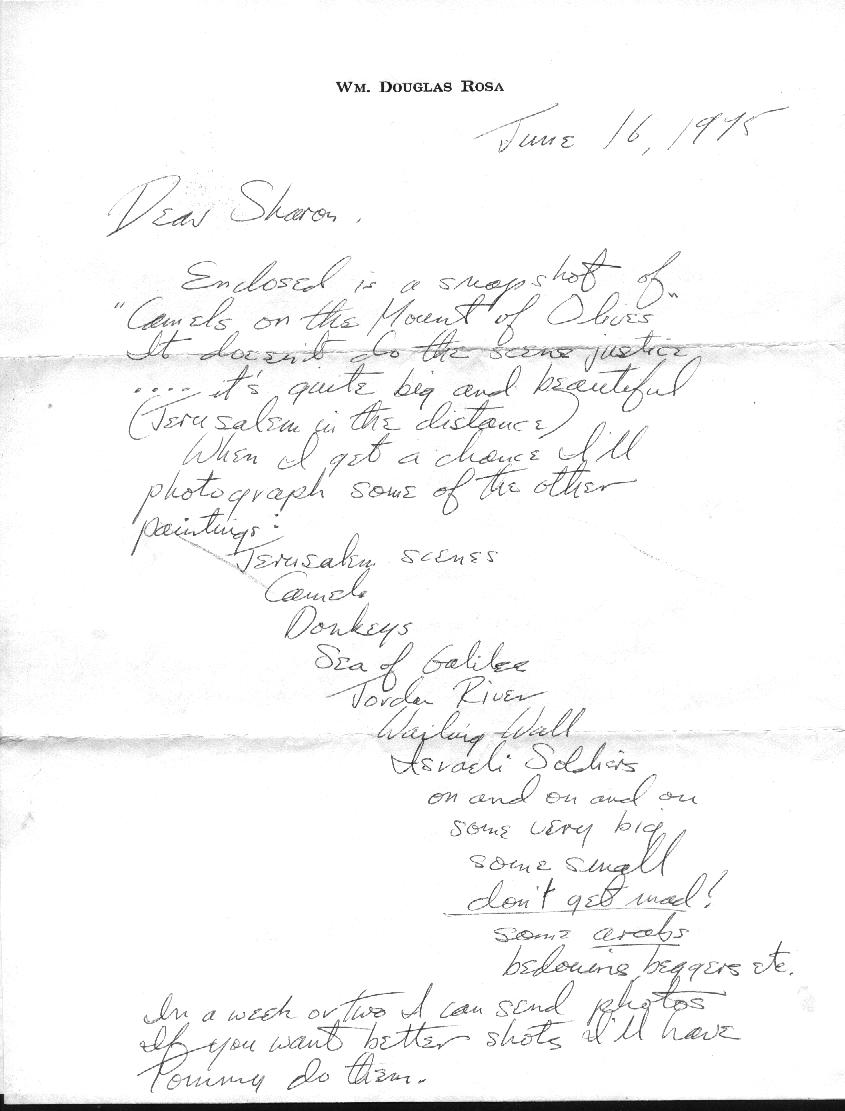 WM. DOUGLAS ROSA
June 16, 1975
Dear Sharon,
Enclosed is a snapshot of
"Camels on the Mount of Olives"
It doesn't do the scene justice
.... it's quite big and beautiful
(Jerusalem in the distance)
When I get a chance I'll
photograph some of the other
paintings:
Jerusalem scenes
Camels
Donkeys
Sea of Galilee
Jordan River
Wailing Wall
Israeli Soldiers
on and on and on
some very big
some small
don't get mad!
some arabs
bedouins beggers etc.
In a week or two I can send photos
If you want better shots I'll have
Tommy do them.